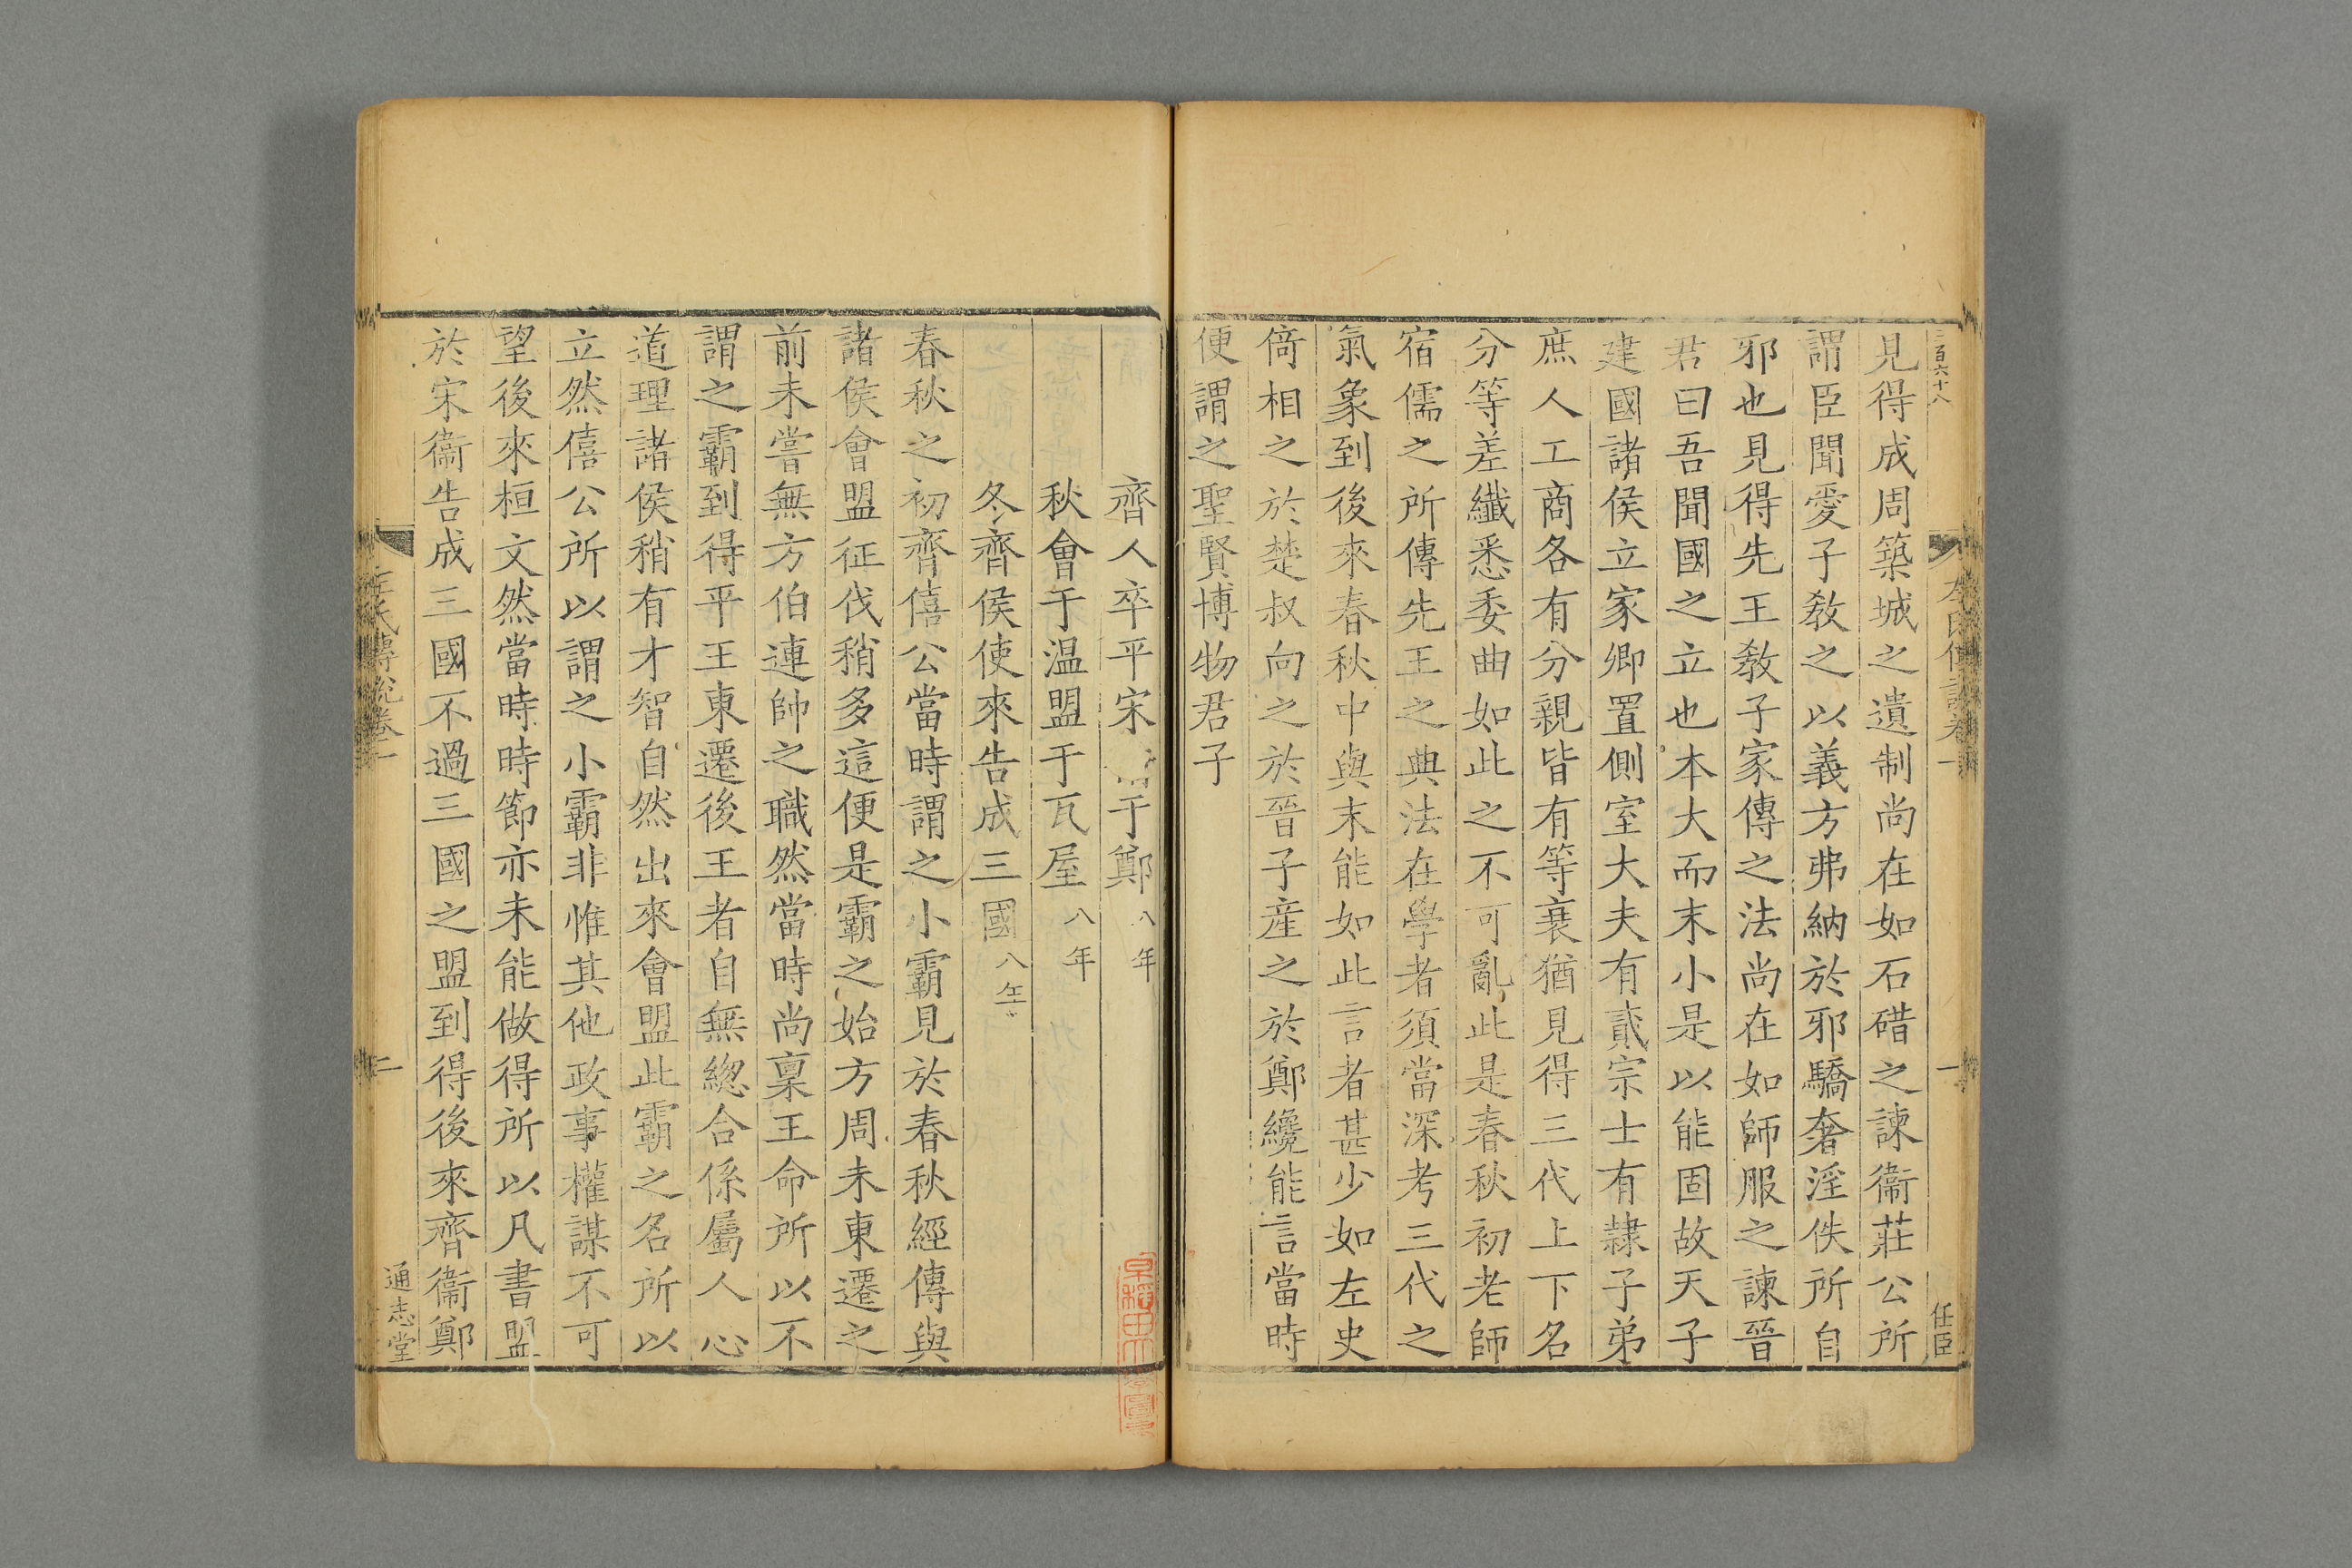 見得成周築城之遺制尚在如石碏之諫衞莊公所
謂臣聞愛子教之以義方弗納於邪驕奢淫佚所自
邪也見得先王敎子家傳之法尚在如師服之諫晉
君曰吾聞國之立也本大而末小是以能固故天子
建國諸侯立家卿置側室大夫有貳宗士有隷子弟
庶人工商各有分親皆有等衰猶見得三代上下名
分等差纎悉委曲如此之不可亂此是春秋初老師
宿儒之所傳先王之典法在學者須當深考三代之
氣象到後來春秋中與末能如此言者甚少如左史
倚相之於楚叔向之於晉子産之於鄭纔能言當時
便謂之聖賢博物君子
齊人卒平宋于鄭八年
秋會于温盟于瓦屋八年
冬齊侯使來告成三國八年
春秋之初齊僖公當時謂之小霸見於春秋經傳與
諸侯會盟征伐稍多這便是霸之始方周未東遷之
前未嘗無方伯連帥之職然當時尚稟王命所以不
謂之霸到得平王東遷後王者自無緫合係屬人心
道理諸侯稍有才智自然出來會盟此霸之名所以
立然僖公所以謂之小霸非惟其他政事權謀不可
望後來桓文然當時時節亦未能做得所以凡書盟
於宋衞告成三國不過三國之盟到得後來齊衞鄭
左氏傳說卷一
二
通志堂
任臣